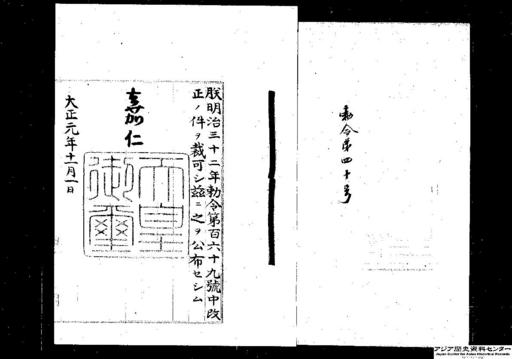 勅令第四十号
朕明治三十二年勅令第百六十九號中改
正ノ件ヲ裁可シ茲ニ之ヲ公布セシム
嘉仁
天皇
御璽
大正元年十一月一日
アジア歴史資料センター
Japan Center for Asian Historical Records